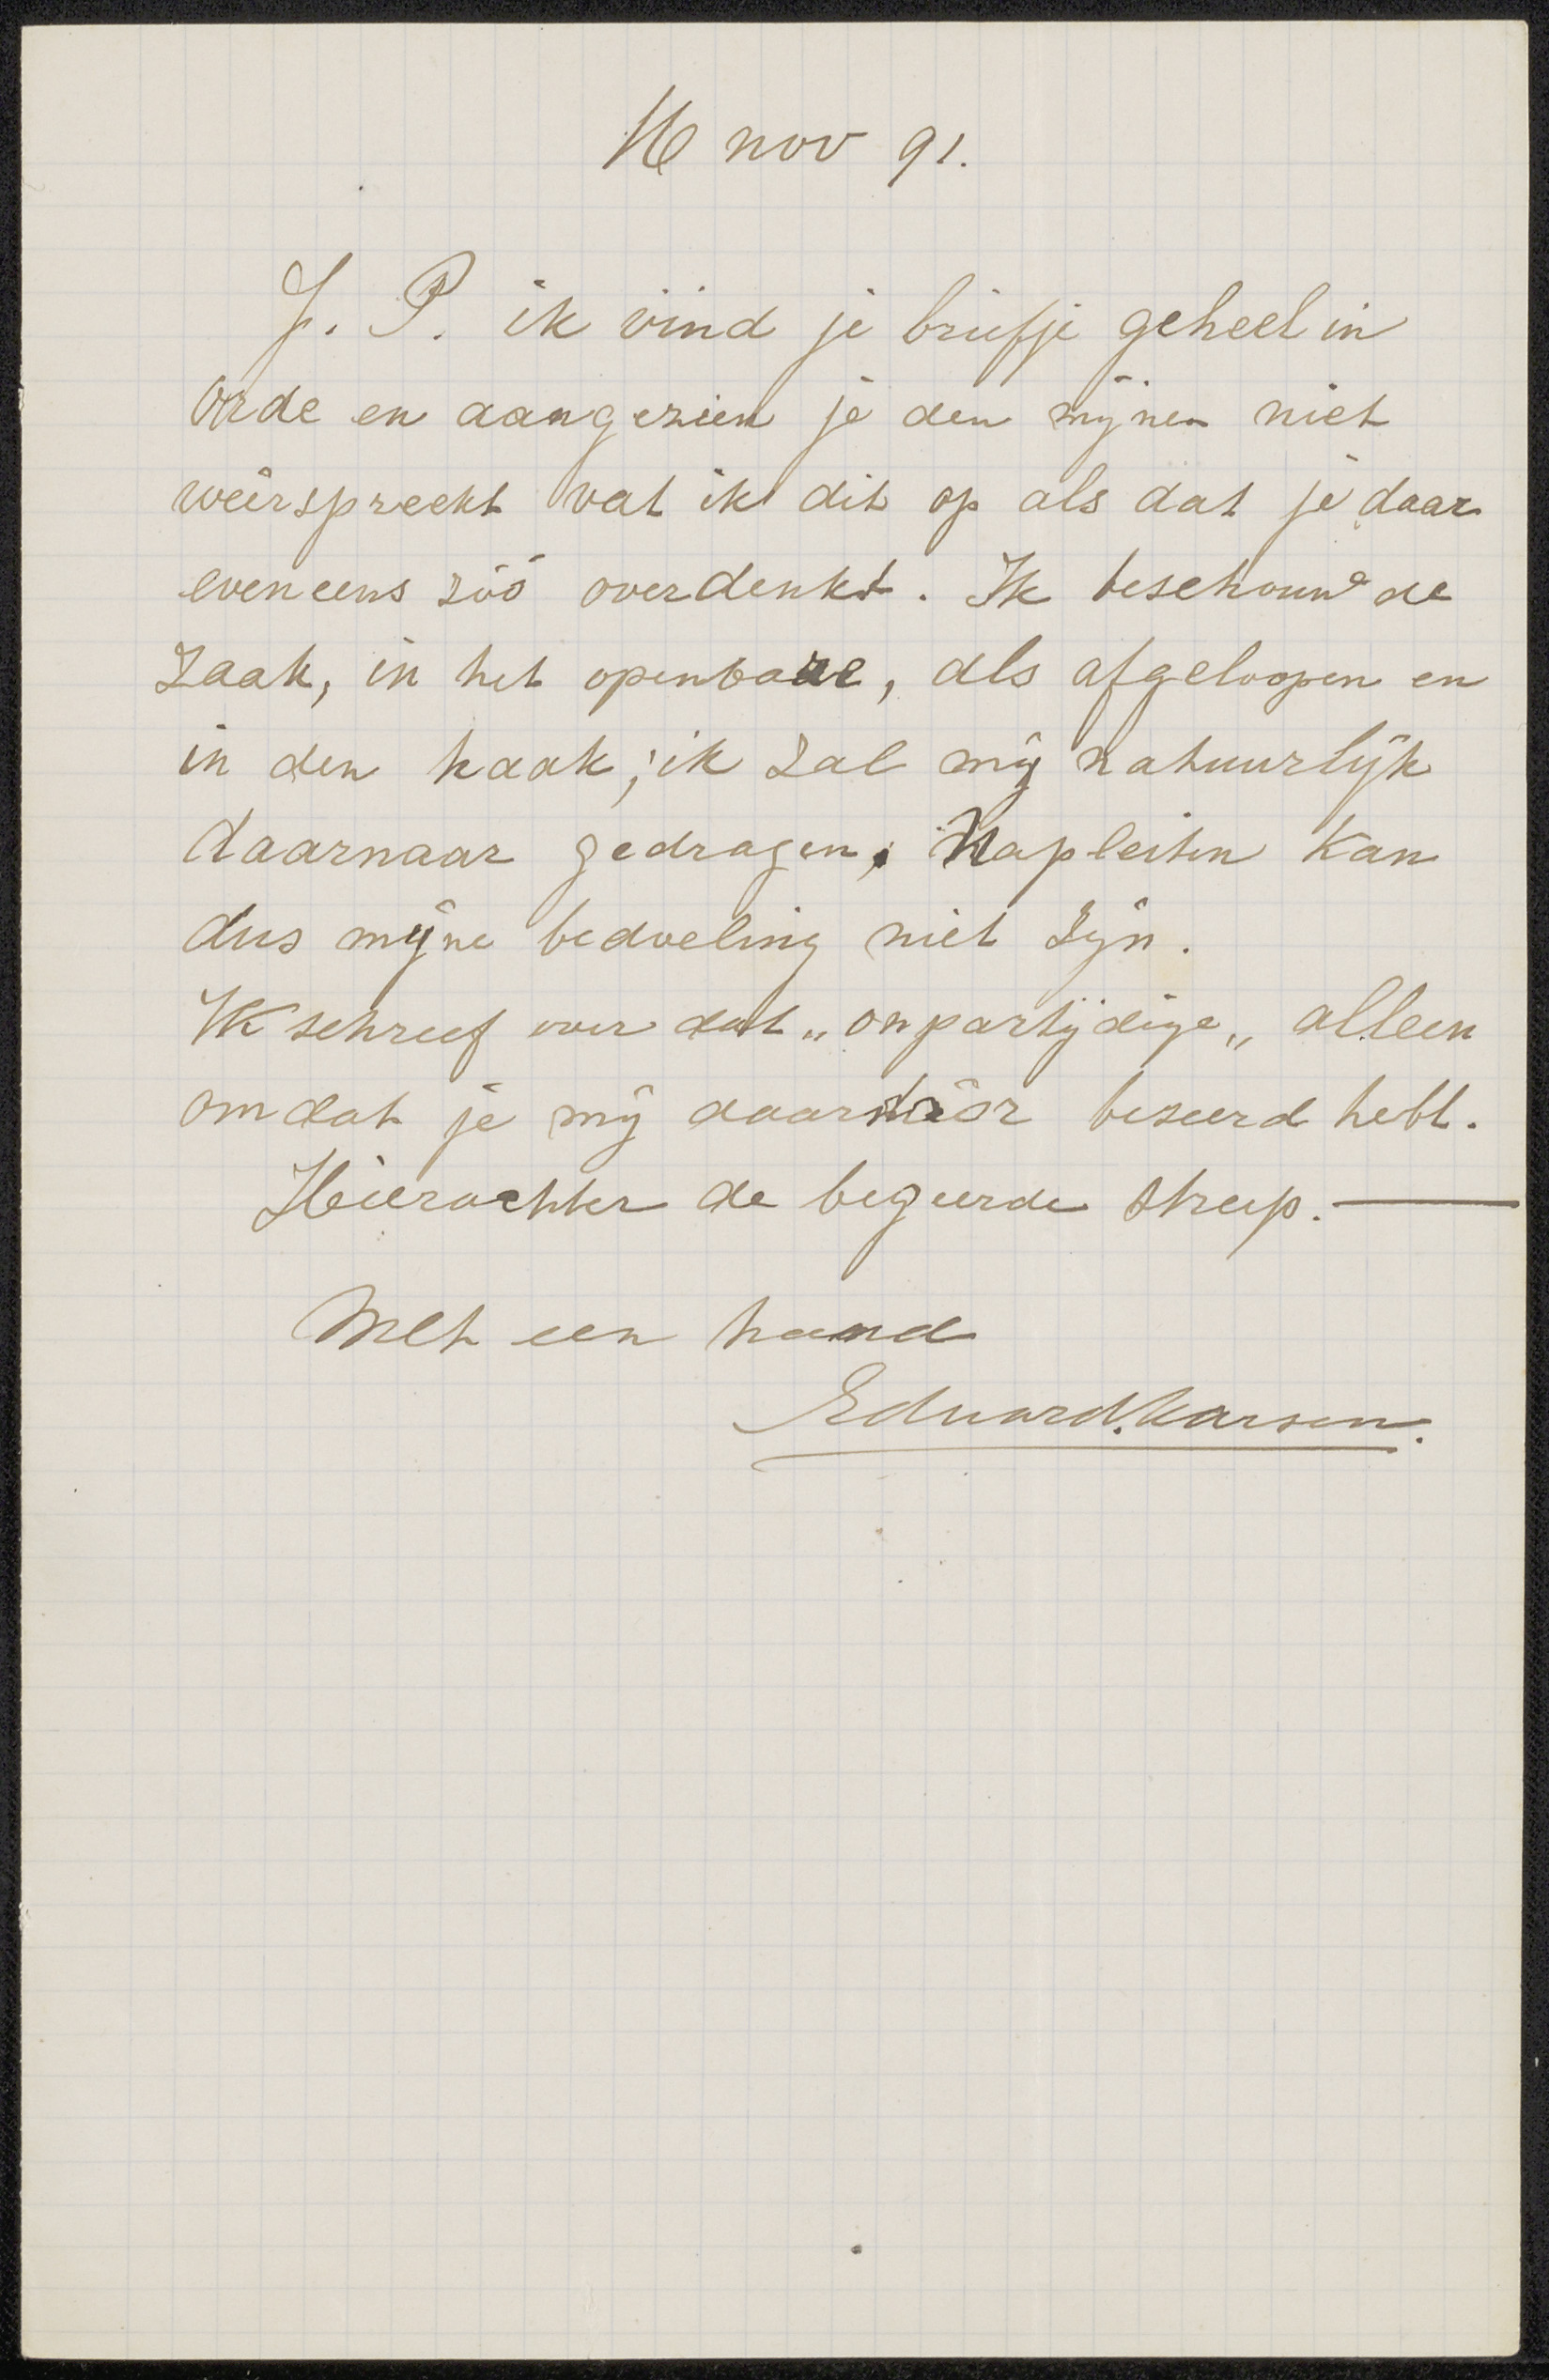 16 nov 91.
J. P. ik vind je briefje geheel in
orde en aangezien je den mijnen niet
weêrspreekt vat ik dit op als dat je daar
eveneens zóó over denkt. Ik beschouw de
zaak, in het openbare, als afgeloopen en
in den haak; ik zal mij natuurlijk
daarnaar gedragen; Napleiten kan
dus mijne bedoeling niet zijn.
Ik schreef over dat „onpartijdige„ alleen
omdat je mij daardóór bezeerd hebt.
Hierachter de begeerde streep. —
Met een hand
Eduard. Karsen.